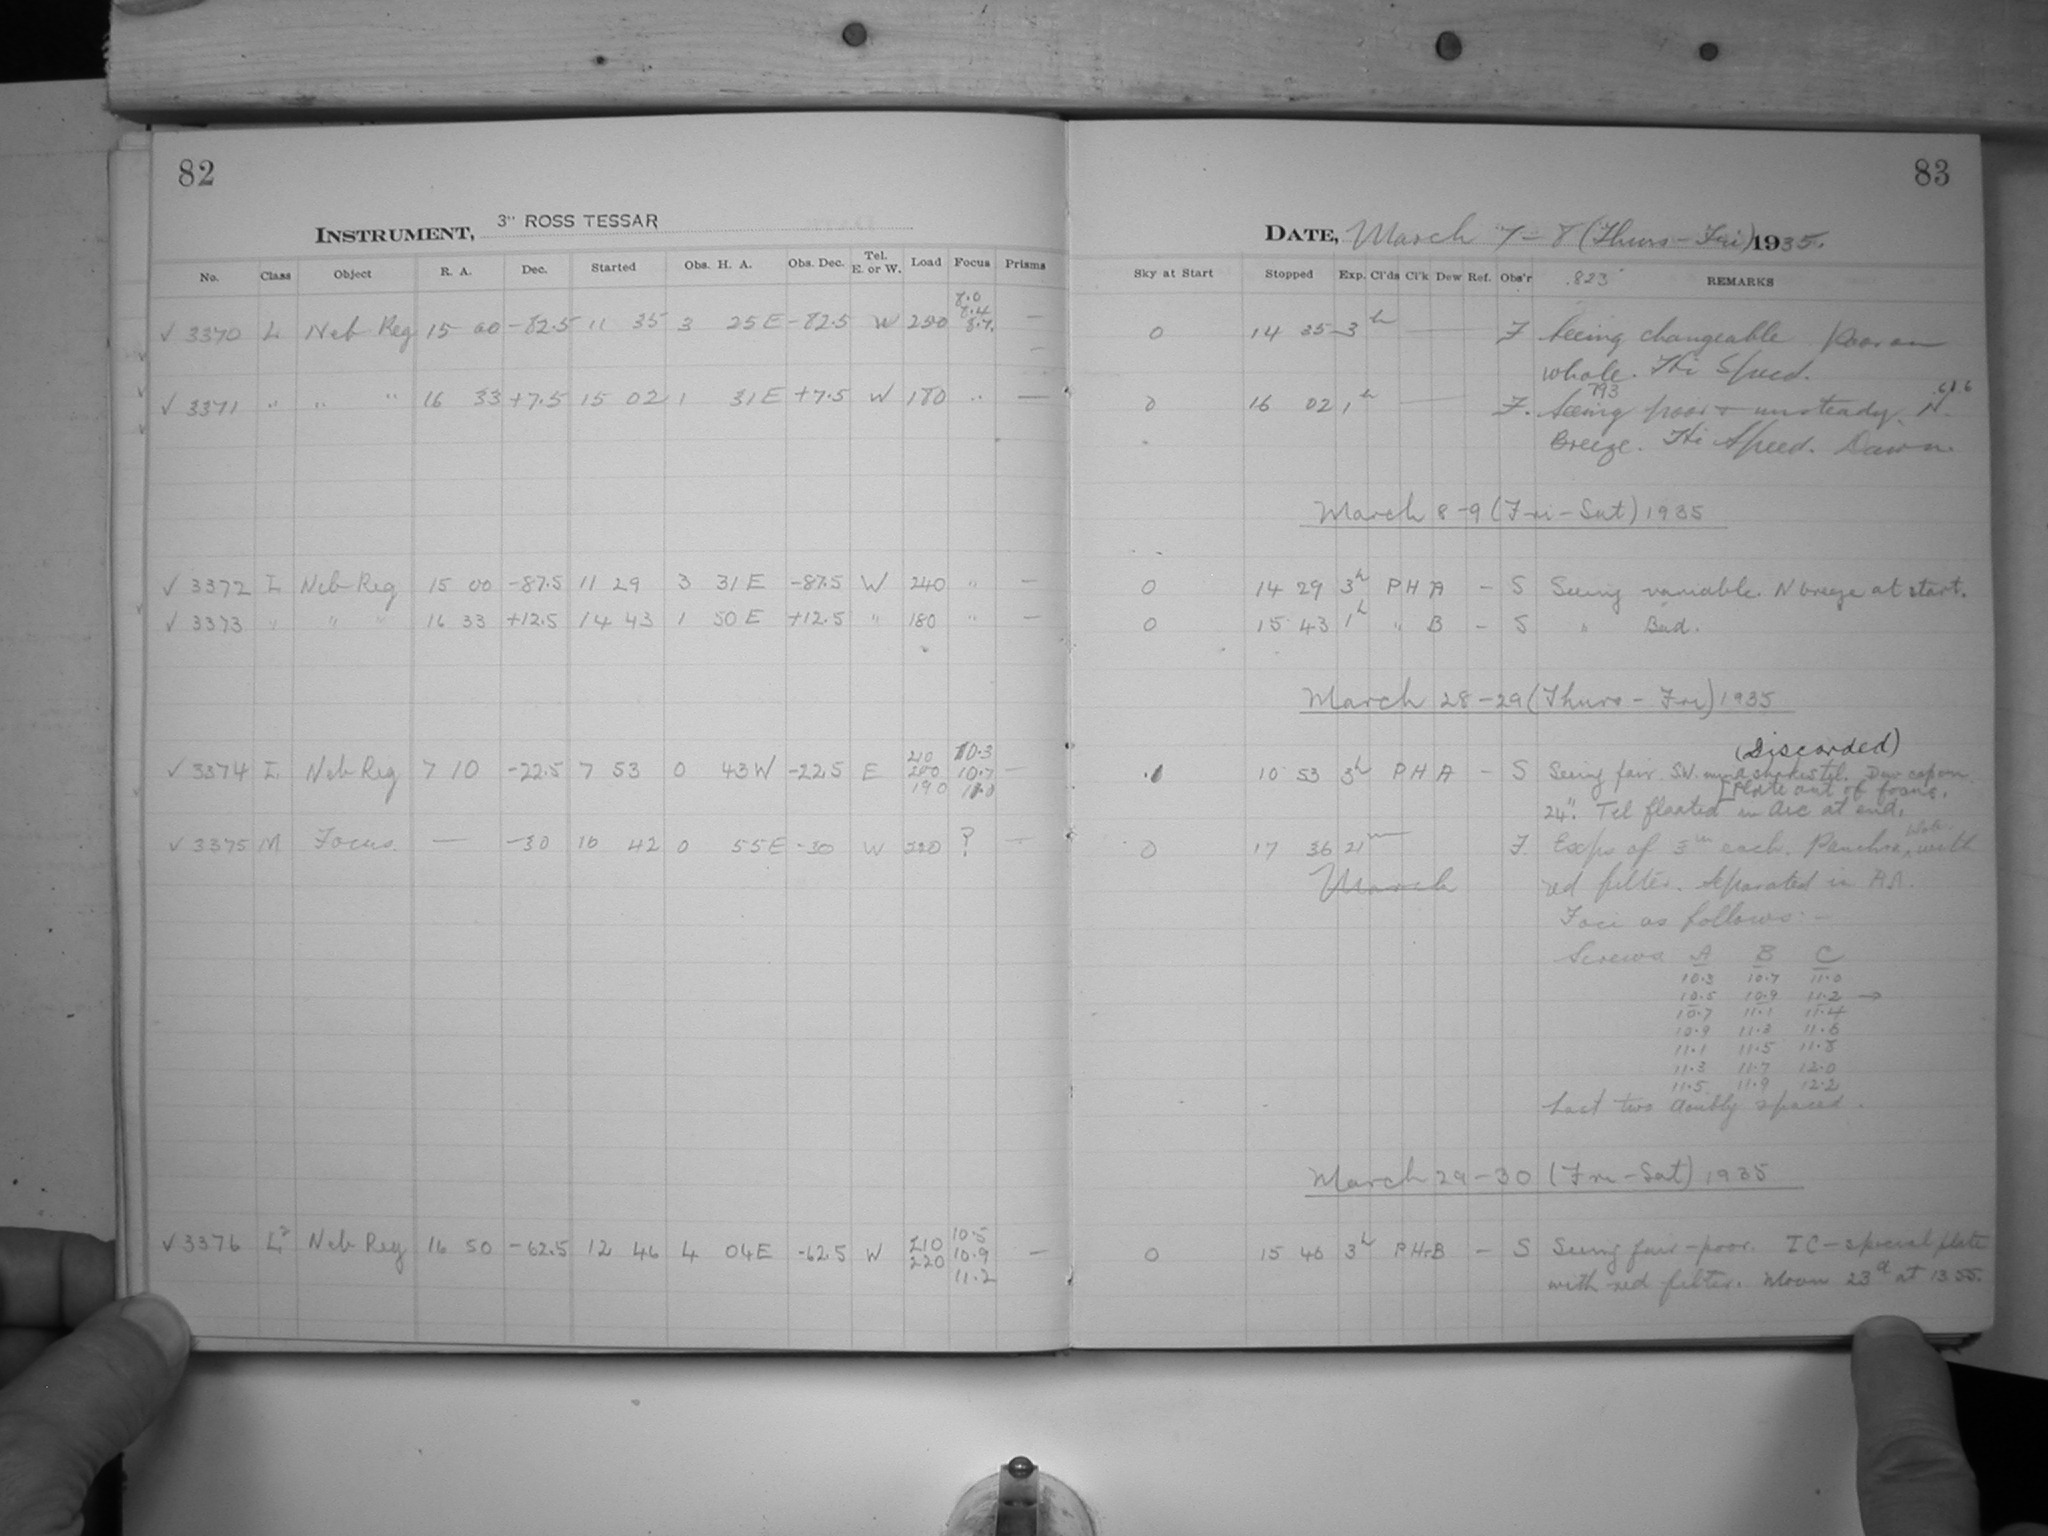 82
INSTRUMENT, 3" ROSS TESSAR
No. Class Object R. A. Dec. Started Obs. H. A. Obs. Dec. Tel. E. or W. Load Focus Prisms
8.0
8.4
✓ 3370 L Neb Reg 15 00 -82.5 11 35 3 25 E -82.5 W 250 8.7 —
✓ 3371 " " " 16 33 +7.5 15 02 1 31 E +7.5 W 180 " —
✓ 3372 L Neb Reg 15 00 -87.5 11 29 3 31 E -87.5 W 240 " —
✓ 3373 " " " 16 33 +12.5 14 43 1 50 E +12.5 " 180 " —
210 10.3
✓ 3374 L Neb Reg 7 10 -22.5 7 53 0 43 W -22.5 E 200 10.7 —
190 11.0
✓ 3375 M Focus. — -30 16 42 0 55 E -30 W 220 ? —
10.5
✓ 3376 L² Neb Reg 16 50 -62.5 12 46 4 04 E -62.5 W 210 10.9 —
220
11.2
83
DATE, March 7-8 (Thurs-Fri) 1935.
Sky at Start Stopped Exp. Cl'ds Cl'k Dew Ref. Obs'r .823 REMARKS
0 14 35 3h — F Seeing changeable. Poor on
whole. Hi Speed.
.793
0 16 02 1h — F. Seeing poor & unsteady. N.
Breeze. Hi Speed. Dawn.
March 8-9 (Fri-Sat) 1935
0 14 29 3h P H A - S Seeing variable. N breeze at start.
0 15 43 1h " B - S " Bad.
March 28-29 (Thurs-Fri) 1935
(Discarded)
10 53 3h P H A - S Seeing fair. SW. wind shakes tel. Dew cap on
[Plate out of focus.
24". Tel floated in arc at end.
0 17 36 21m F Exps of 3m each. Panchro, with
March
red filter. Separated in RA.
Foci as follows:-
Screws A B C
10.3 10.7 11.0
10.5 10.9 11.2 →
10.7 11.1 11.4
10.9 11.3 11.6
11.1 11.5 11.8
11.3 11.7 12.0
11.5 11.9 12.2
Last two doubly spaced.
March 29-30 (Fri-Sat) 1935
0 15 46 3h P H+B - S Seeing fair-poor. IC-special plate
with red filter. Moon 23d at 13 55.